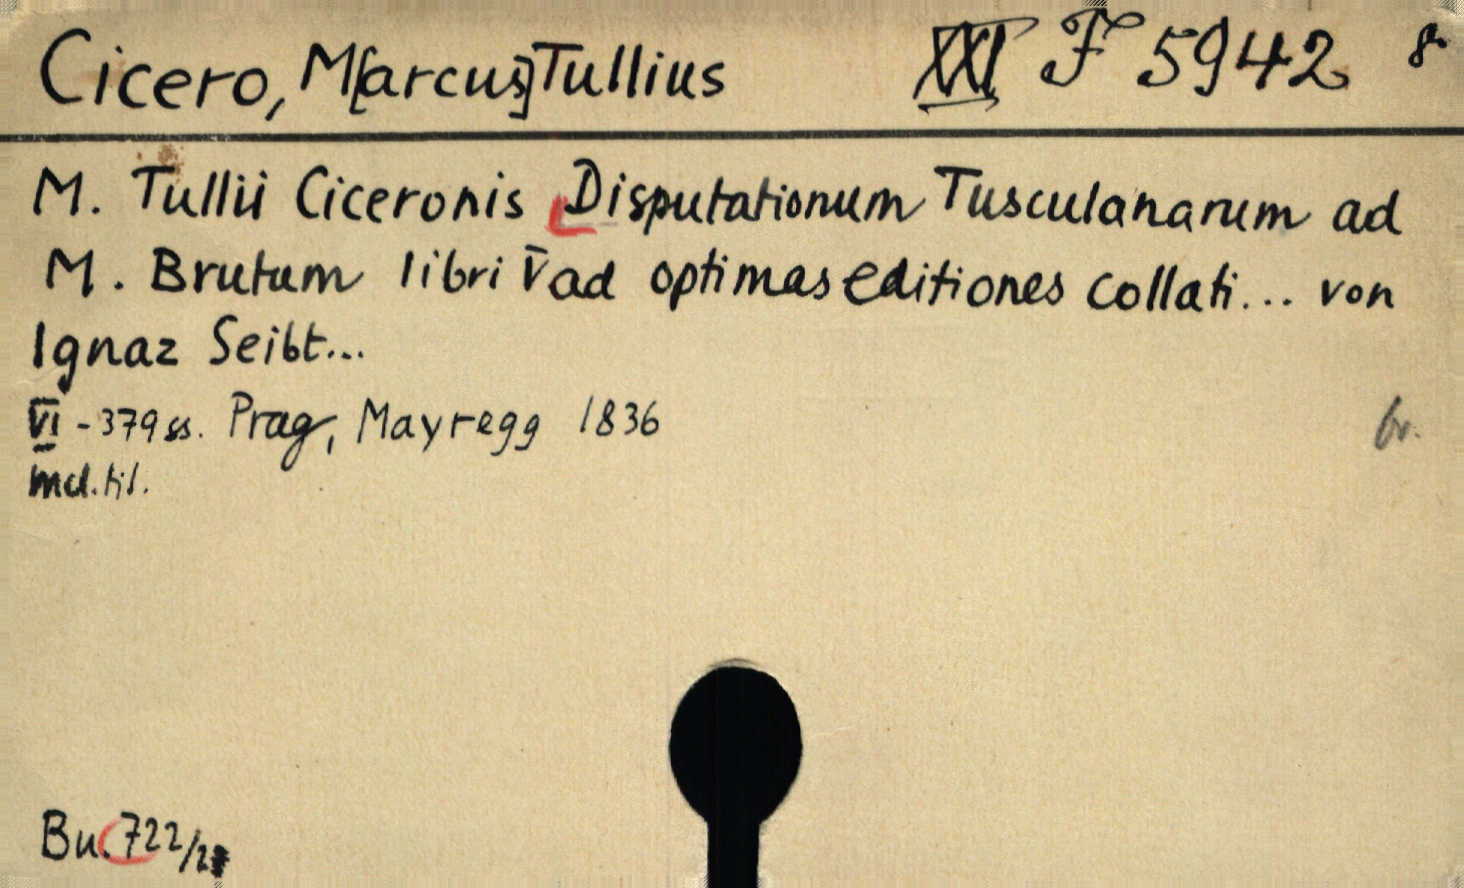 Cicero, M[arcus] Tullius XXI F 5942 8°
M. Tullii Ciceronis Disputationum Tusculanarum ad
M. Brutum libri V ad optimas editiones collati... von
Ignaz Seibt...
VI - 379 ss. Prag, Mayregg 1836
br.
Bu. 722